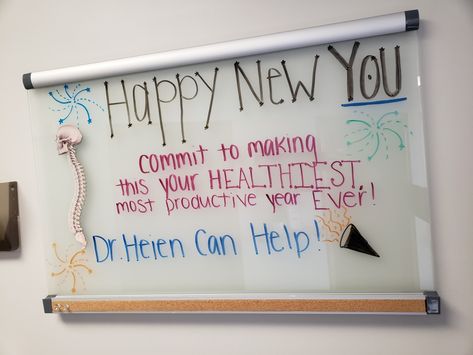 Happy New YOU
Commit to making
this your HEALTHIEST,
most productive year Ever!
Dr. Heien Can Help!